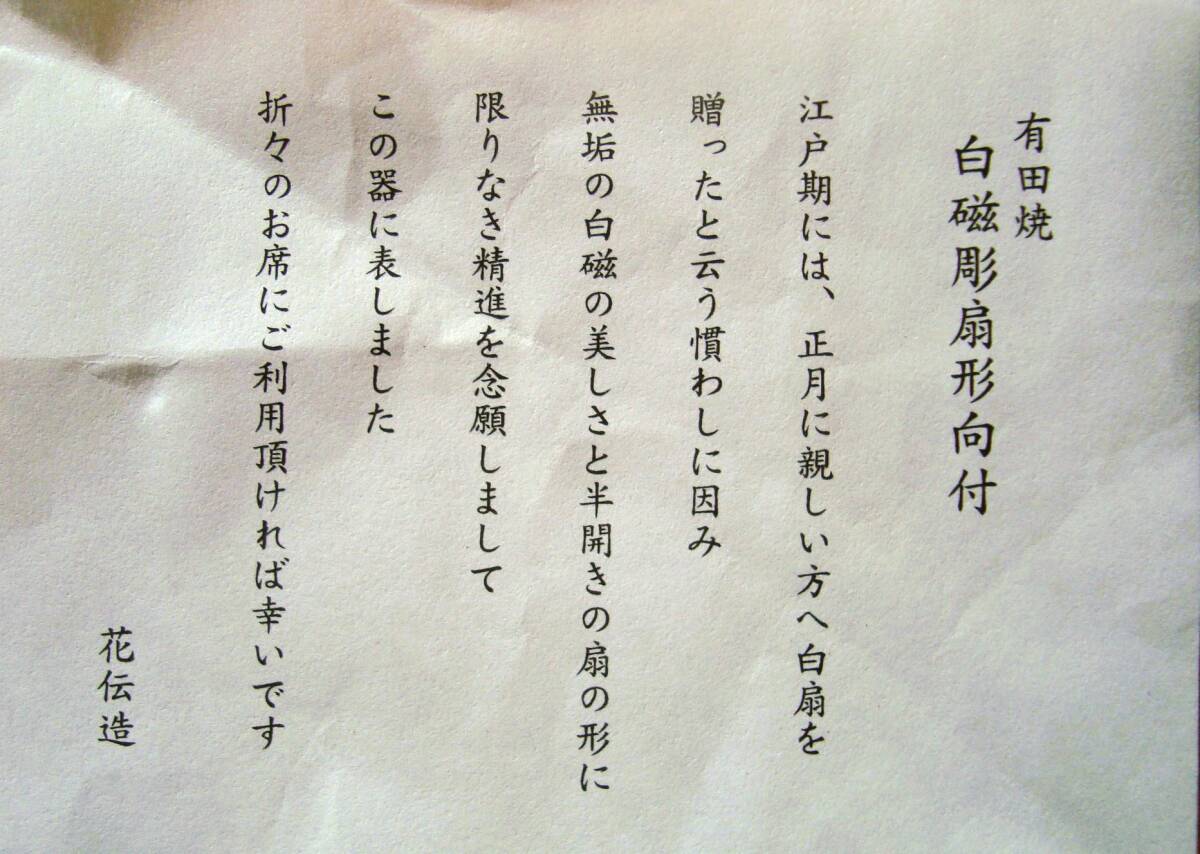 有田焼
白磁彫扇形向付
江戸期には、正月に親しい方へ白扇を
贈ったと云う慣わしに因み
無垢の白磁の美しさと半開きの扇の形に
限りなき精進を念願しまして
この器に表しました
折々のお席にご利用頂ければ幸いです
花伝造